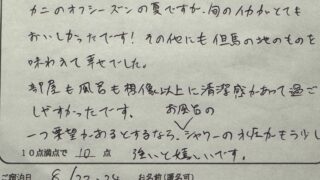 カニのオフシーズンの夏ですが、旬のイカがとても
おいしかったです！その他にも但馬の地のものを
味わえて幸せでした。
部屋も風呂も想像以上に清潔感があって過ご
しやすかったです。
お風呂の
一つ要望があるとするなら、シャワーの水圧がもう少し
10点満点で 10 点
強いと嬉しいです。
ご宿泊日 8/23-24 お名前(匿名可)